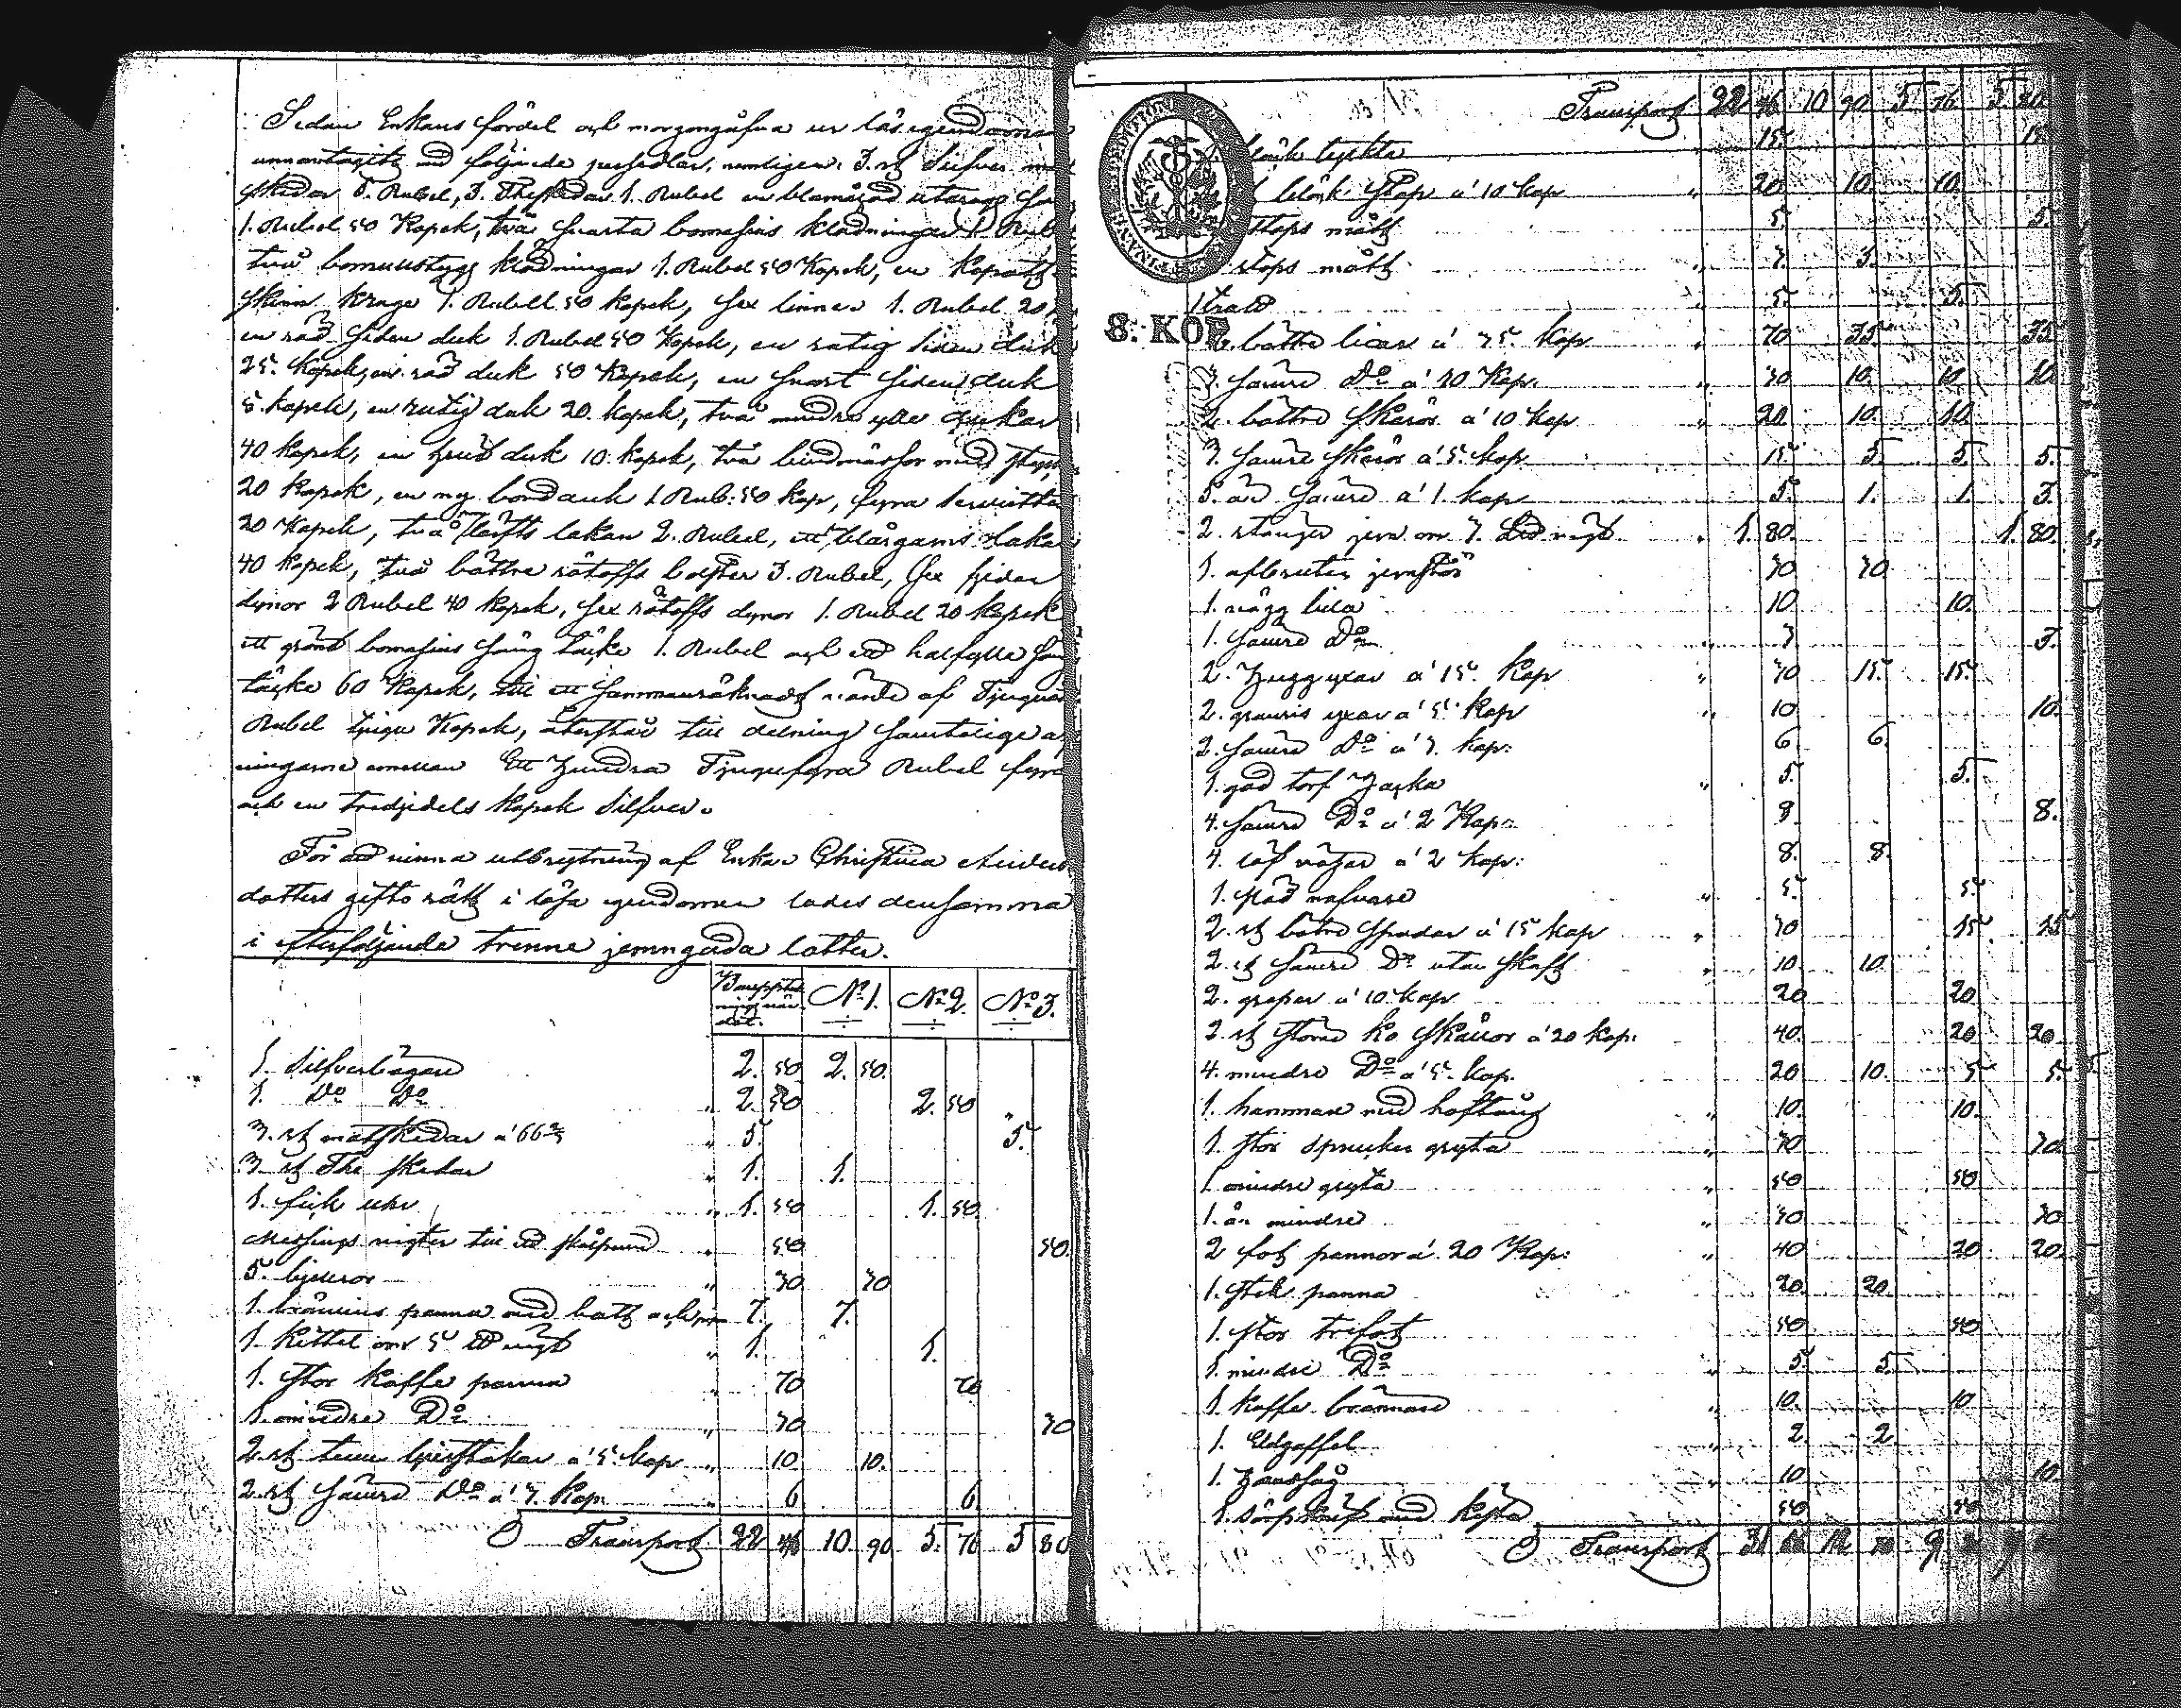 Sedan Enkans fördel och morgongåfva ur lösegendomen
unnantagitz med följande persedlar, nemligen: 3. st Silfver mat
skedar 5. Rubel, 3. Theskedar 1. Rubel en
1. Rubel 50 Kopek, två svarta bomasins klädningar 1. Rubel
två bomullstygs klädningar 1. Rubel 50 Kopek, en Kapott
skinn krage 1. Rubel 50 kopek, sex linnen 1. Rubel 20
en röd siden duk 1. Rubel 50 Kopek, en rutig siden duk
25. Kopek, en röd duk 50 Kopek, en svart siden duk
5. kopek, en rutig duk 20. kopek, två mindre ylle dukar
40 kopek, en hvit duk 10. kopek, två lindmössor med
20 kopek, en ny bordduk 1 Rub: 50 kop, fyra servietter
20 Kopek, två lärfts lakan 2. Rubel, ett blårgarns lakan
40 kopek, två bättre bolster 3. Rubel, sex fjeder
dynor 2 Rubel 40 kopek, sex dynor 1. Rubel 20 kopek
ett grönt bomasins säng täcke 1. Rubel och ett halfylle säng
täcke 60 Kopek, till ett sammanräknadt värde af Tjugu
Rubel tjugu Kopek, återstår till delning samteliga
ningarne emellan Ett Hundra Tjugufyra Rubel fyra
och en tredjedels kopek Silfver.
För att vinna utbrytning af Enkan Christina Anders
dotters gifto rätt i lösa egendomen lades densamma
i efterföljande trenne jemngoda lotter.
Bouppteck
nings vär
det. No 1. No 2. No 3.
1. Silfverbägare 2. 50 2. 50.
1. Do Do " 2. 50 2. 50
3. st matskedar a' 66 2/3 " 5. 5.
3. st The skedar " 1. 1.
1. fick uhr " 1. 50 1. 50.
Messings vigter till ett skålpund " 50 50.
5. bjellror " 30 30
1. bränvins panna med hatt och pipor 7. 7.
1. Kittel om 5 LB vigt " 1. 1.
1. stor kaffe panna " 70 70
1. mindre Do " 30 30
2. st tenn ljusstakar a' 5. kop " 10 10.
2. st sämre Do a' 3. kop " 6 6
Transport 22 46 10. 90 5. 76 5 80
Transport 22 46 10 90 5 76 5 80
bleck lyckta 15. 15
bleck stop a' 10 kop " 20 10. 10.
stops mått 5. 5.
stops mått " 3. 3.
1 tratt " 5. 5.
8. KOP
2. bättre liear a' 35. kop " 70 35. 35
3. sämre Do a' 10 kop. " 30 10. 10. 10.
2. bättre skäror a' 10 kop " 20 10. 10.
3. sämre skäror a' 5. kop 15 5. 5. 5.
5. än sämre a' 1. kop 5. 1. 1 3.
2. stänger jern om 3. LB vigt " 1. 80. 1. 80.
1. afbruten jernstör 30 30
1. vägg lina 10. 10.
1. sämre Do 3 3.
2. Huggyxar a' 15. kop " 30 15. 15.
2. yxar a' 5. kop " 10 10.
2. sämre Do a' 3. kop: 6. 6.
1. god torf Hacka " 5. 5.
4. sämre Do a' 2 Kop: 8. 8.
4. a' 2 kop: 8. 8
1. nafvare " 5. 5.
2. st bättre spadar a' 15 kop " 30 15. 15
2. st sämre Do utan skaft " 10. 10.
2. grepar a' 10 kop 20 20
2. st större ko skällor a' 20 kop: 40. 20 20
4. mindre Do a' 5. kop. 20 10. 5 5.
1. hammare med hoftång " 10. 10.
1. stor sprucken gryta " 30 30.
1 mindre gryta " 50 50
1. än mindre " 30 30
2 fot pannor a' 20 Kop: " 40 20 20.
1. stek panna 20 20
1. stor trefot 50 50
1. mindre Do " 5. 5.
1. kaffe brännare " 10. 10
1. Eldgaffel " 2 2
1. Handsåg " 10 10.
1. med 50 50
Transport 31